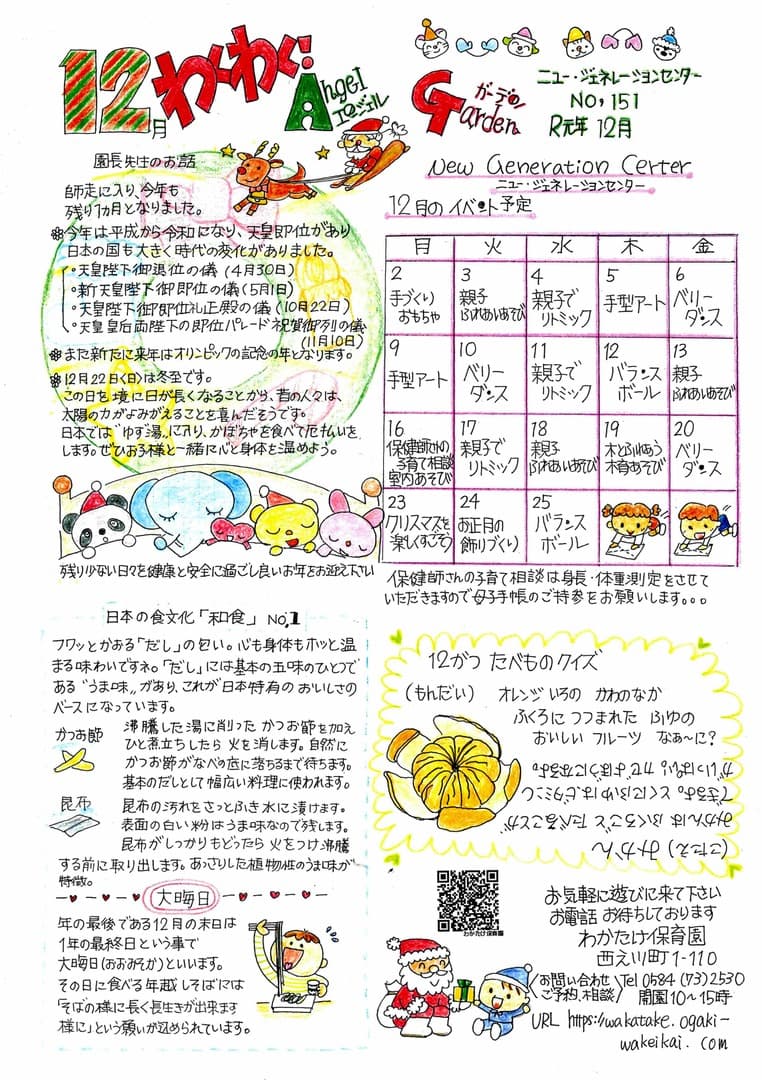 12月 わくわく! Angel エンジェル Garden ガーデン
ニュー・ジェネレーションセンター
NO,151
R元年 12月
園長先生のお話
師走に入り、今年も
残り1カ月となりました。
❁今年は平成から令和になり、天皇即位があり
日本の国も大きく時代の変化がありました。
・天皇陛下御退位の儀(4月30日)
・新天皇陛下御即位の儀(5月1日)
・天皇陛下御即位礼正殿の儀(10月22日)
・天皇皇后両陛下の即位パレード祝賀御列の儀
(11月10日)
❁また新たに来年はオリンピックの記念の年となります。
❁12月22日(日)は冬至です。
この日を境に日が長くなることから、昔の人々は、
太陽の力がよみがえることを喜んだそうです。
日本では"ゆず湯"に入り、かぼちゃを食べて厄払いを
します。ぜひお子様と一緒に心と身体を温めよう。
残り少ない日々を健康と安全に過ごし良いお年をお迎え下さい
New Generation Certer
ニュー・ジェネレーションセンター
12月のイベント予定
月 火 水 木 金
2 3 4 5 6
手づくりおもちゃ 親子ふれあいあそび 親子でリトミック 手型アート ベリーダンス
9 10 11 12 13
手型アート ベリーダンス 親子でリトミック バランスボール 親子ふれあいあそび
16 17 18 19 20
保健師さんの子育て相談室内あそび 親子でリトミック 親子ふれあいあそび 木とふれあう木育あそび ベリーダンス
23 24 25
クリスマスを楽しくすごそう お正月の飾りづくり バランスボール
保健師さんの子育て相談は身長・体重測定をさせて
いただきますので母子手帳のご持参をお願いします。。。
日本の食文化「和食」 No,1
フワッとかおる「だし」の匂い。心も身体もホッと温
まる味わいですネ。「だし」には基本の五味のひとつで
ある"うま味"があり、これが日本特有のおいしさの
ベースになっています。
かつお節
沸騰した湯に削ったかつお節を加え
ひと煮立ちしたら火を消します。自然に
かつお節がなべの底に落ちるまで待ちます。
基本のだしとして幅広い料理に使われます。
昆布
昆布の汚れをさっとふき水に漬けます。
表面の白い粉はうま味なので残します。
昆布がしっかりもどったら火をつけ沸騰
する前に取り出します。あっさりした植物性のうま味が
特徴。
大晦日
年の最後である12月の末日は
1年の最終日という事で
大晦日(おおみそか)といいます。
その日に食べる年越しそばには
「そばの様に長く長生きが出来ます
様に」という願いが込められています。
12がつ たべものクイズ
(もんだい) オレンジいろの かわのなか
ふくろに つつまれた ふゆの
おいしい フルーツ なぁ~に?
(こたえ) みかん
みかんは ふくろごと たべることが
できるよ。
わかたけ保育園
お気軽に遊びに来て下さい
お電話 お待ちしております
わかたけ保育園
西之川町1-110
お問い合わせ
ご予約、相談
Tel 0584 (73) 2530
開園10~15時
URL https://wakatake.ogaki-
wakeikai.com